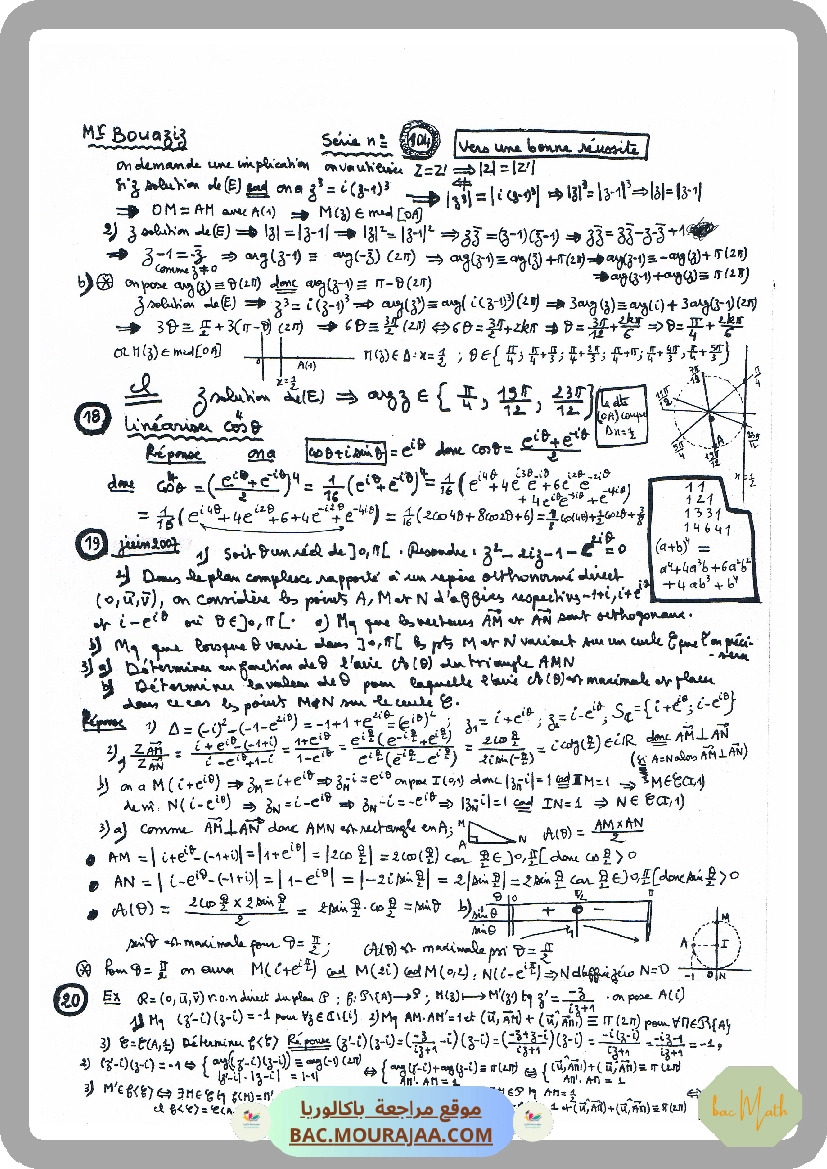 Mr Bouaziz Série n° 104 Vers une bonne réussite
on demande une implication on va utiliser Z=Z' ⟹ |Z|=|Z'|
Si z solution de (E) and on a z³ = i(z-1)³ ⟹ |z³|=|i(z-1)³| ⟹ |z|³=|z-1|³ ⟹ |z|=|z-1|
⟹ OM = AM avec A(1) ⟹ M(z) ∈ med[OA]
2) z solution de (E) ⟹ |z|=|z-1| ⟹ |z|²=|z-1|² ⟹ zz̄=(z-1)(z̄-1) ⟹ zz̄=zz̄-z-z̄+1
⟹ z-1=-z̄ ⟹ arg(z-1)≡arg(-z̄)(2π) ⟹ arg(z-1)≡-arg(z)+π(2π)
comme z≠0 ⟹ arg(z-1)+arg(z)≡π(2π)
b) on pose arg(z)≡θ(2π) donc arg(z-1)≡π-θ(2π)
z solution de (E) ⟹ z³=i(z-1)³ ⟹ arg(z³)≡arg(i(z-1)³)(2π) ⟹ 3arg(z)≡arg(i)+3arg(z-1)(2π)
⟹ 3θ≡π/2+3(π-θ)(2π) ⟹ 6θ≡ (2π) ⟺ 6θ= +2kπ ⟹ θ= +2kπ/6 ⟹ θ=π/4+2kπ/6
or M(z)∈med[OA] O A(1) x=1/2 M(z)∈Δ:x=1/2 ; θ∈{π/4, π/4+π/3; π/4+2π/3; π/4+π; π/4+4π/3, π/4+5π/3}
cl z solution de (E) ⟹ arg z ∈ {π/4, 19π/12, 23π/12} la dte (OA) coupe Δx=1/2
18 Linéariser cos⁴θ
Réponse on a cosθ+isinθ = e^iθ donc cosθ = (e^iθ+e^-iθ)/2
donc cos⁴θ = ((e^iθ+e^-iθ)/2)⁴ = 1/16 (e^iθ+e^-iθ)⁴ = 1/16 (e^i4θ+4e^i3θ e^-iθ+6e^i2θ e^-2iθ+4e^iθ e^-3iθ+e^-4iθ)
= 1/16 (e^i4θ+4e^i2θ+6+4e^-i2θ+e^-i4θ) = 1/16 (2cos4θ+8cos2θ+6) = 1/8 cos(4θ)+1/2 cos2θ+3/8
1 1
1 2 1
1 3 3 1
1 4 6 4 1
(a+b)⁴ =
a⁴+4a³b+6a²b²
+4ab³+b⁴
19 juin 2007 1) Soit θ un réel de ]0,π[ . Résoudre : z²-2iz-1-e^2iθ=0
2) Dans le plan complexe rapporté à un repère orthonormé direct
(O,u⃗,v⃗), on considère les points A, M et N d'affixes respectives -1+i, i+e^iθ
et i-e^iθ où θ∈]0,π[. a) Mq que les vecteurs AM⃗ et AN⃗ sont orthogonaux.
b) Mq que lorsque θ varie dans ]0,π[ les pts M et N varient sur un cercle ℰ que l'on précisera
3) a) Déterminer en fonction de θ l'aire A(θ) du triangle AMN
b) Déterminer la valeur de θ pour laquelle l'aire A(θ) est maximale et placer
dans ce cas les points M et N sur le cercle ℰ.
Réponse 1) Δ=(-i)²-(-1-e^2iθ)=-1+1+e^2iθ=(e^iθ)² ; z₁=i+e^iθ ; z₂=i-e^iθ, S_ℂ={i+e^iθ; i-e^iθ}
2) Z_AM⃗/Z_AN⃗ = (i+e^iθ-(-1+i))/(i-e^iθ+1-i) = (1+e^iθ)/(1-e^iθ) = e^iθ/2(e^-iθ/2+e^iθ/2)/e^iθ/2(e^-iθ/2-e^iθ/2) = 2cosθ/2 / 2isin(-θ/2) = i cotg(θ/2) ∈ iℝ donc AM⃗⊥AN⃗
(si A=N alors AM⃗⊥AN⃗)
b) on a M(i+e^iθ) ⟹ z_M=i+e^iθ ⟹ z_M-i=e^iθ on pose I(0,1) donc |z_M-i|=1 cad IM=1 ⟹ M∈ℰ(I,1)
de m̂. N(i-e^iθ) ⟹ z_N=i-e^iθ ⟹ z_N-i=-e^iθ ⟹ |z_N-i|=1 cad IN=1 ⟹ N∈ℰ(I,1)
3) a) Comme AM⃗⊥AN⃗ donc AMN est rectangle en A; M A N A(θ) = AM×AN/2
• AM=|i+e^iθ-(-1+i)|=|1+e^iθ|=|2cosθ/2|=2cos(θ/2) car θ/2∈]0,π/2[ donc cosθ/2>0
• AN=|i-e^iθ-(-1+i)|=|1-e^iθ|=|-2isinθ/2|=2|sinθ/2|=2sinθ/2 car θ/2∈]0,π/2[ donc sinθ/2>0
• A(θ) = 2cosθ/2×2sinθ/2 / 2 = 2sinθ/2.cosθ/2=sinθ b) θ 0 π/2 π sin'θ + 0 - sinθ 1
sinθ est maximale pour θ=π/2 ; A(θ) est maximale psi θ=π/2 M A I -1 0 N
Pour θ=π/2 on aura M(i+e^iπ/2) cad M(2i) cad M(0,2); N(i-e^iπ/2) ⟹ N d'affixe zéro N=O
20 Ex R=(O,u⃗,v⃗) r.o.n direct du plan P ; f: P\{A}→P ; M(z)↦M'(z') tq z'=-z/(iz+1) . on pose A(i)
1) Mq (z'-i)(z-i)=-1 pour ∀z∈ℂ\{i} 2) Mq AM.AM'=1 et (u⃗,AM⃗)+(u⃗,AM'⃗)≡π(2π) pour ∀M∈P\{A}
3) ℰ=ℰ(A,1/2) Déterminer f<ℰ> Réponse (z'-i)(z-i)=(-z/(iz+1)-i)(z-i)=((-z+z-i)/(iz+1))(z-i)=-i(z-i)/(iz+1)=(-iz-1)/(iz+1)=-1,
2) (z'-i)(z-i)=-1 ⟺ { arg((z'-i)(z-i))≡arg(-1)(2π) |z'-i|.|z-i|=|-1| ⟺ { arg(z'-i)+arg(z-i)≡π(2π) AM'.AM=1 ⟺ { (u⃗,AM'⃗)+(u⃗,AM⃗)≡π(2π) AM'.AM=1
3) M'∈f<ℰ> ⟺ ∃M∈ℰ tq f(M)=M'
موقع مراجعة باكالوريا
BAC.MOURAJAA.COM
bac Math